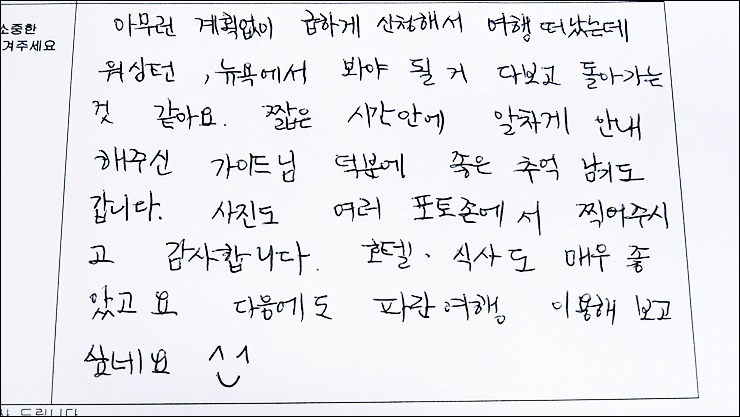 소중한
겨주세요
아무런 계획없이 급하게 신청해서 여행 떠났는데
워싱턴, 뉴욕에서 봐야 될 거 다보고 돌아가는
것 같아요. 짧은 시간안에 알차게 안내
해주신 가이드님 덕분에 좋은 추억 남기도
갑니다. 사진도 여러 포토존에서 찍어주시
고 감사합니다. 호텔·식사도 매우 좋
았고요 다음에도 파란여행 이용해 보고
싶네요 ^^
드립니다